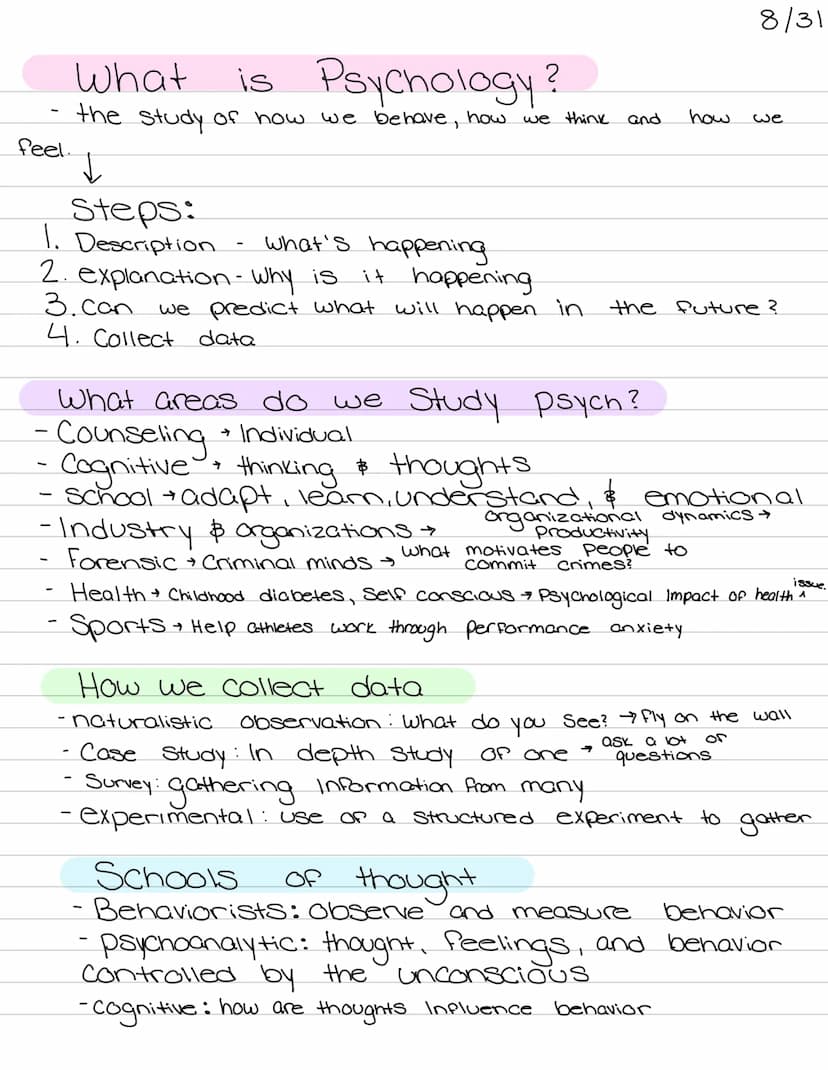 8/31
What is Psychology?
- the study of how we behave, how we think and how we
feel.
↓
Steps:
1. Description - what's happening
2. explanation - why is it happening
3. can we predict what will happen in the future?
4. Collect data
What areas do we study psych?
- Counseling → Individual
- Cognitive → thinking & thoughts
- school → adapt, learn, understand, & emotional
- Industry & organizations → organizational dynamics →
productivity
- Forensic → Criminal minds → what motivates people to
commit crimes?
- Health → Childhood diabetes, Self conscious → Psychological Impact of health ^ issue.
- Sports → Help athletes work through performance anxiety
How we collect data
- naturalistic observation: what do you see? → fly on the wall
- Case study: In depth study of one → ask a lot of
questions
- Survey: gathering Information from many
- experimental: use of a structured experiment to gather
Schools of thought
- Behaviorists: observe and measure behavior
- psychoanalytic: thought, feelings, and behavior
controlled by the unconscious
- cognitive: how are thoughts Influence behavior